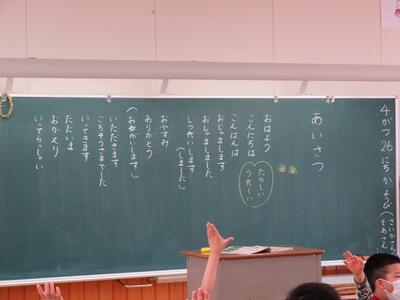 4がつ26にちかようび
あいさつ
おはよう
こんにちは
こんばんは
たのしい
うれしい
おじゃまします
おじゃましました
しつれいします
(しました)
おやすみ
ありがとう
(おねがいします)
いただきます
ごちそうさまでした
いってきます
ただいま
おかえり
いってらっしゃい